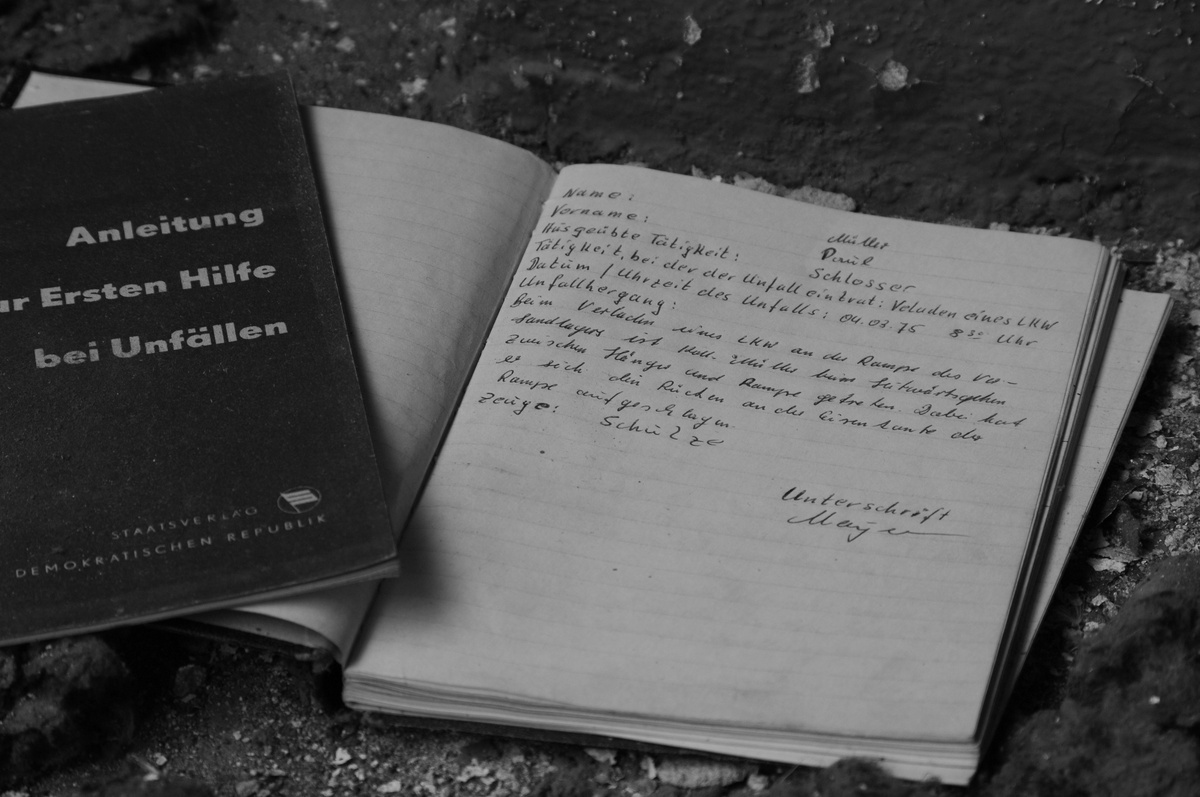 Anleitung
ur Ersten Hilfe
bei Unfällen
STAATSVERLAG
DEMOKRATISCHEN REPUBLIK
Name: Müller
Vorname: Paul
Ausgeübte Tätigkeit: Schlosser
Tätigkeit, bei der der Unfall eintrat: Veladen eines LKW
Datum / Uhrzeit des Unfalls: 04.03.75 8³⁰ Uhr
Unfallhergang:
Beim Verladen eines LKW an der Rampe des Ver-
sandlagers ist Koll. Müller beim Seitwärtsgehen
zwischen Hänger und Rampe getreten. Dabei hat
er sich den Rücken an der Eisenkante der
Rampe aufgeschlagen.
Zeuge: Schulze
Unterschrift